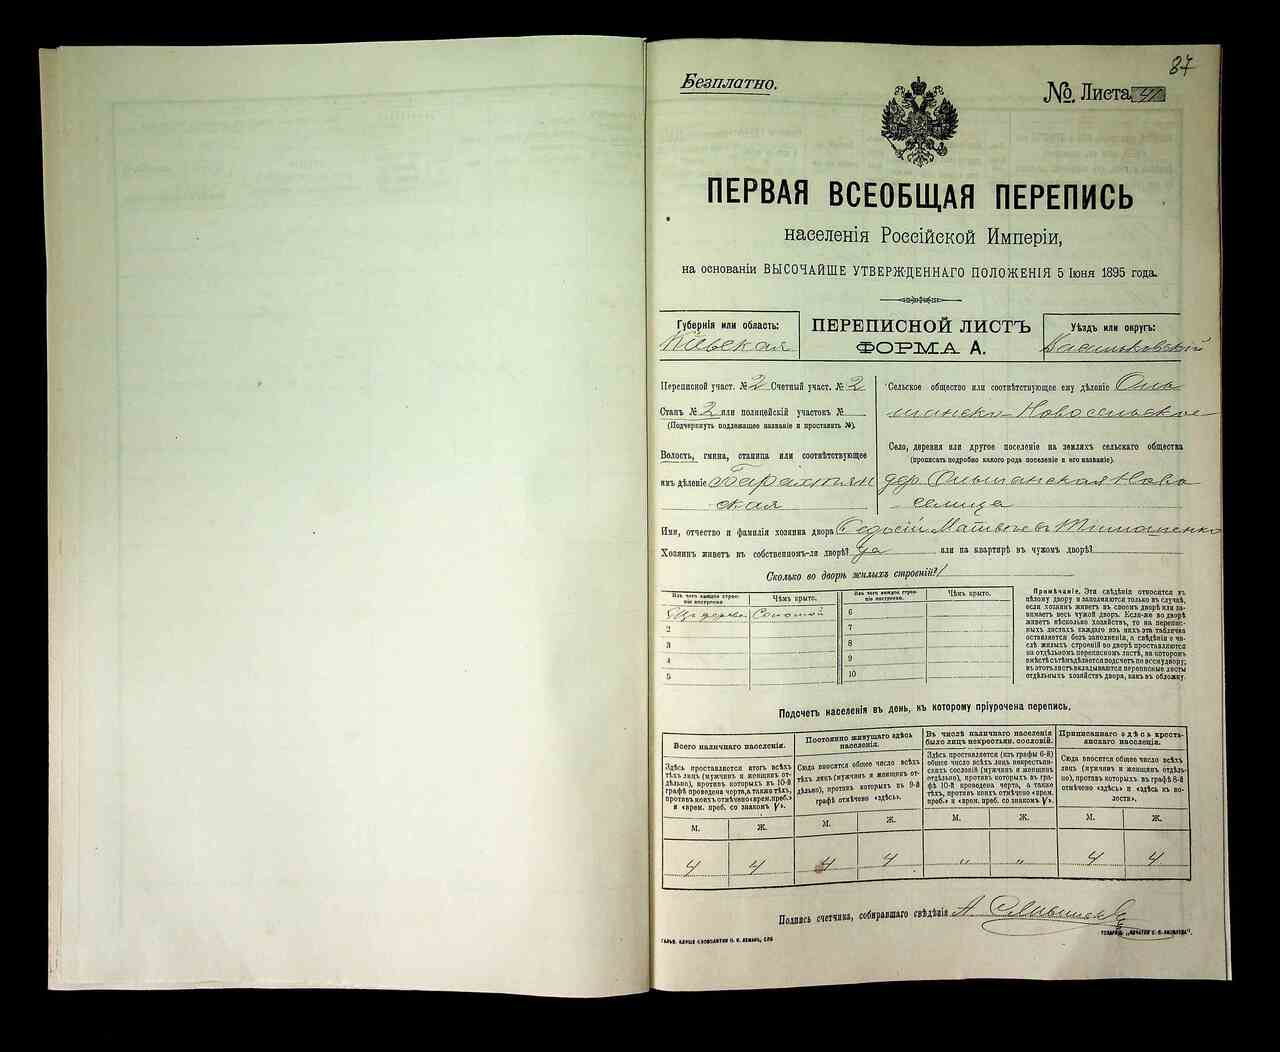 87
Безплатно.
№ Листа 41
ПЕРВАЯ ВСЕОБЩАЯ ПЕРЕПИСЬ
населенія Россійской Имперіи,
на основаніи ВЫСОЧАЙШЕ УТВЕРЖДЕННАГО ПОЛОЖЕНІЯ 5 Іюня 1895 года.
Губернія или область:
Кіевская
ПЕРЕПИСНОЙ ЛИСТЪ
ФОРМА А.
Уѣздъ или округъ:
Васильковскій
Переписной участ. № 2 Счетный участ. № 2
Станъ № 2 или полицейскій участокъ №
(Подчеркнуть подлежащее названіе и проставить №).
Волость, гмина, станица или соотвѣтствующее
имъ дѣленіе Барахтян
ская
Сельское общество или соотвѣтствующее ему дѣленіе Оль
шанско-Новосельское
Село, деревня или другое поселеніе на земляхъ сельскаго общества
(прописать подробно какого рода поселеніе и его названіе).
дер. Ольшанская Ново
селица
Имя, отчество и фамилія хозяина двора Федосій Матвѣевъ Тимошенко
Хозяинъ живетъ въ собственномъ-ли дворѣ? да или на квартирѣ въ чужомъ дворѣ?
Сколько во дворѣ жилыхъ строеній? 1
Изъ чего каждое строе-
ніе построено
Чѣмъ крыто.
Изъ чего каждое строе-
ніе построено
Чѣмъ крыто.
1 Изъ дерева Соломой
2
3
4
5
6
7
8
9
10
Примѣчаніе. Эти свѣдѣнія относятся къ
цѣлому двору и заполняются только въ случаѣ,
если хозяинъ живетъ въ своемъ дворѣ или за-
нимаетъ весь чужой дворъ. Если-же во дворѣ
живетъ нѣсколько хозяйствъ, то на перепис-
ныхъ листахъ каждаго изъ нихъ эта табличка
оставляется безъ заполненія, а свѣдѣнія о чи-
слѣ жилыхъ строеній во дворѣ проставляются
на отдѣльномъ переписномъ листѣ, на которомъ
вмѣстѣ съ тѣмъ дѣлается подсчетъ по всему двору;
въ этотъ листъ вкладываются переписные листы
отдѣльныхъ хозяйствъ двора, какъ въ обложку.
Подсчетъ населенія въ день, къ которому пріурочена перепись.
Всего наличнаго населенія.
Постоянно живущаго здѣсь
населенія.
Въ числѣ наличнаго населенія
было лицъ некрестьян. сословій.
Приписаннаго здѣсь кресть-
янскаго населенія.
Здѣсь проставляется итогъ всѣхъ
тѣхъ лицъ (мужчинъ и женщинъ от-
дѣльно), противъ которыхъ въ 10-й
графѣ проведена черта, а также тѣхъ,
противъ коихъ отмѣчено «врем. преб.»
и «врем. преб. со знакомъ V».
Сюда вносится общее число всѣхъ
тѣхъ лицъ (мужчинъ и женщинъ от-
дѣльно), противъ которыхъ въ 9-й
графѣ отмѣчено «здѣсь».
Здѣсь проставляется (изъ графы 6-й)
общее число всѣхъ лицъ некрестьян-
скихъ сословій (мужчинъ и женщинъ
отдѣльно), противъ которыхъ въ гра-
фѣ 10-й проведена черта, а также
тѣхъ, противъ коихъ отмѣчено «врем.
преб.» и «врем. преб. со знакомъ V».
Сюда вносится общее число всѣхъ
лицъ (мужчинъ и женщинъ отдѣль-
но), противъ которыхъ въ графѣ 8-й
отмѣчено «здѣсь» и «здѣсь къ во-
лости».
М. Ж. М. Ж. М. Ж. М. Ж.
4 4 4 4 " " 4 4
Подпись счетчика, собиравшаго свѣдѣнія А.